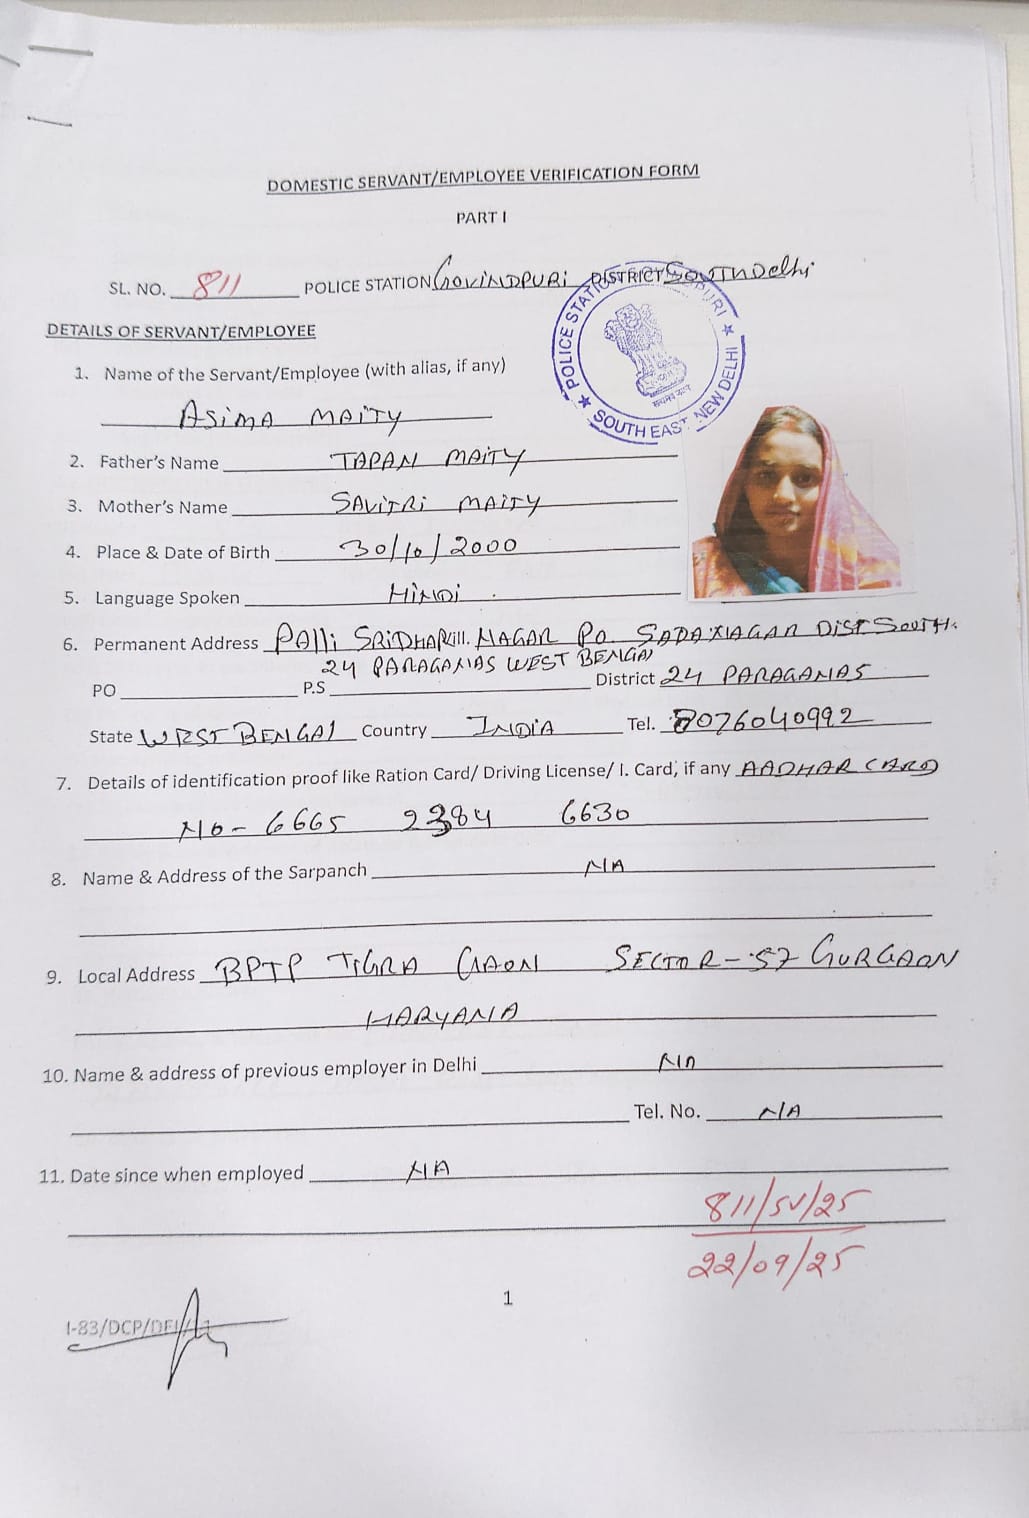 DOMESTIC SERVANT/EMPLOYEE VERIFICATION FORM
PART I
SL. NO. 811 POLICE STATION GOVINDPURI DISTRICT SOUTH Delhi
POLICE STATION
SOUTH EAST NEW DELHI
DETAILS OF SERVANT/EMPLOYEE
1. Name of the Servant/Employee (with alias, if any)
ASIMA MAITY
2. Father's Name TAPAN MAITY
3. Mother's Name SAVITRI MAITY
4. Place & Date of Birth 30/10/2000
5. Language Spoken HINDI
6. Permanent Address PAlli SRIDHAR NAGAR PO. SADAXAGAR DIST SOUTH.
24 PARAGANAS WEST BENGAl
PO P.S District 24 PARAGANAS
State WEST BENGAl Country INDIA Tel. 8076040992
7. Details of identification proof like Ration Card/ Driving License/ I. Card, if any AADHAR CARD
NO- 6665 2384 6630
8. Name & Address of the Sarpanch N/A
9. Local Address BPTP TIGRA GAON SECTOR-57 GURGAON
HARYANA
10. Name & address of previous employer in Delhi N/A
Tel. No. N/A
11. Date since when employed N/A
811/SV/25
22/09/25
1
I-83/DCP/